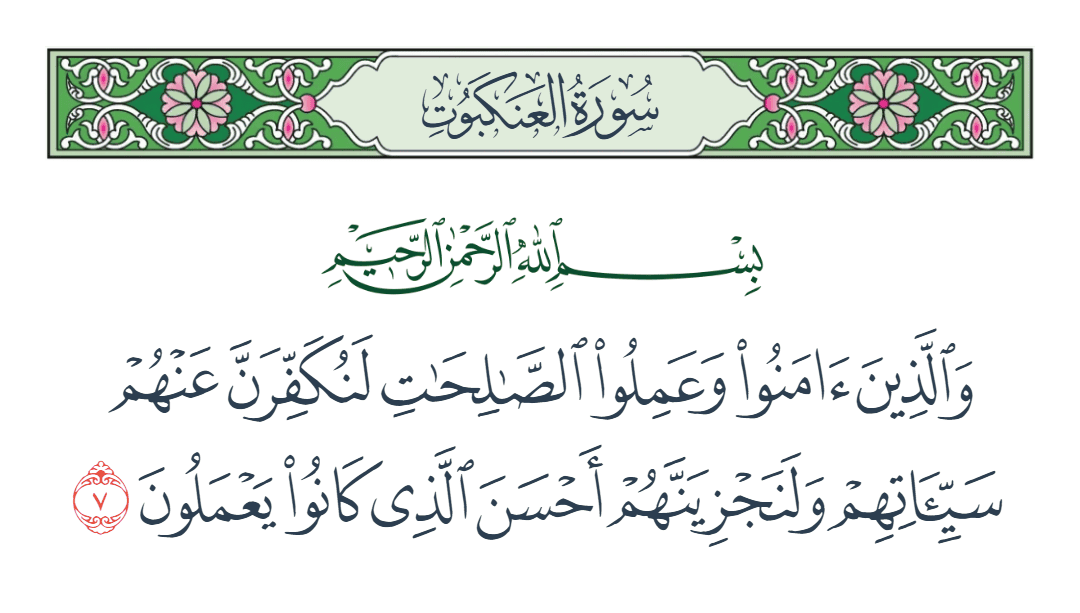 سُورَةُ العَنكَبُوتِ
بِسْمِ ٱللَّهِ ٱلرَّحْمَٰنِ ٱلرَّحِيمِ
وَٱلَّذِينَ ءَامَنُوا۟ وَعَمِلُوا۟ ٱلصَّـٰلِحَـٰتِ لَنُكَفِّرَنَّ عَنْهُمْ
سَيِّـَٔاتِهِمْ وَلَنَجْزِيَنَّهُمْ أَحْسَنَ ٱلَّذِى كَانُوا۟ يَعْمَلُونَ ٧